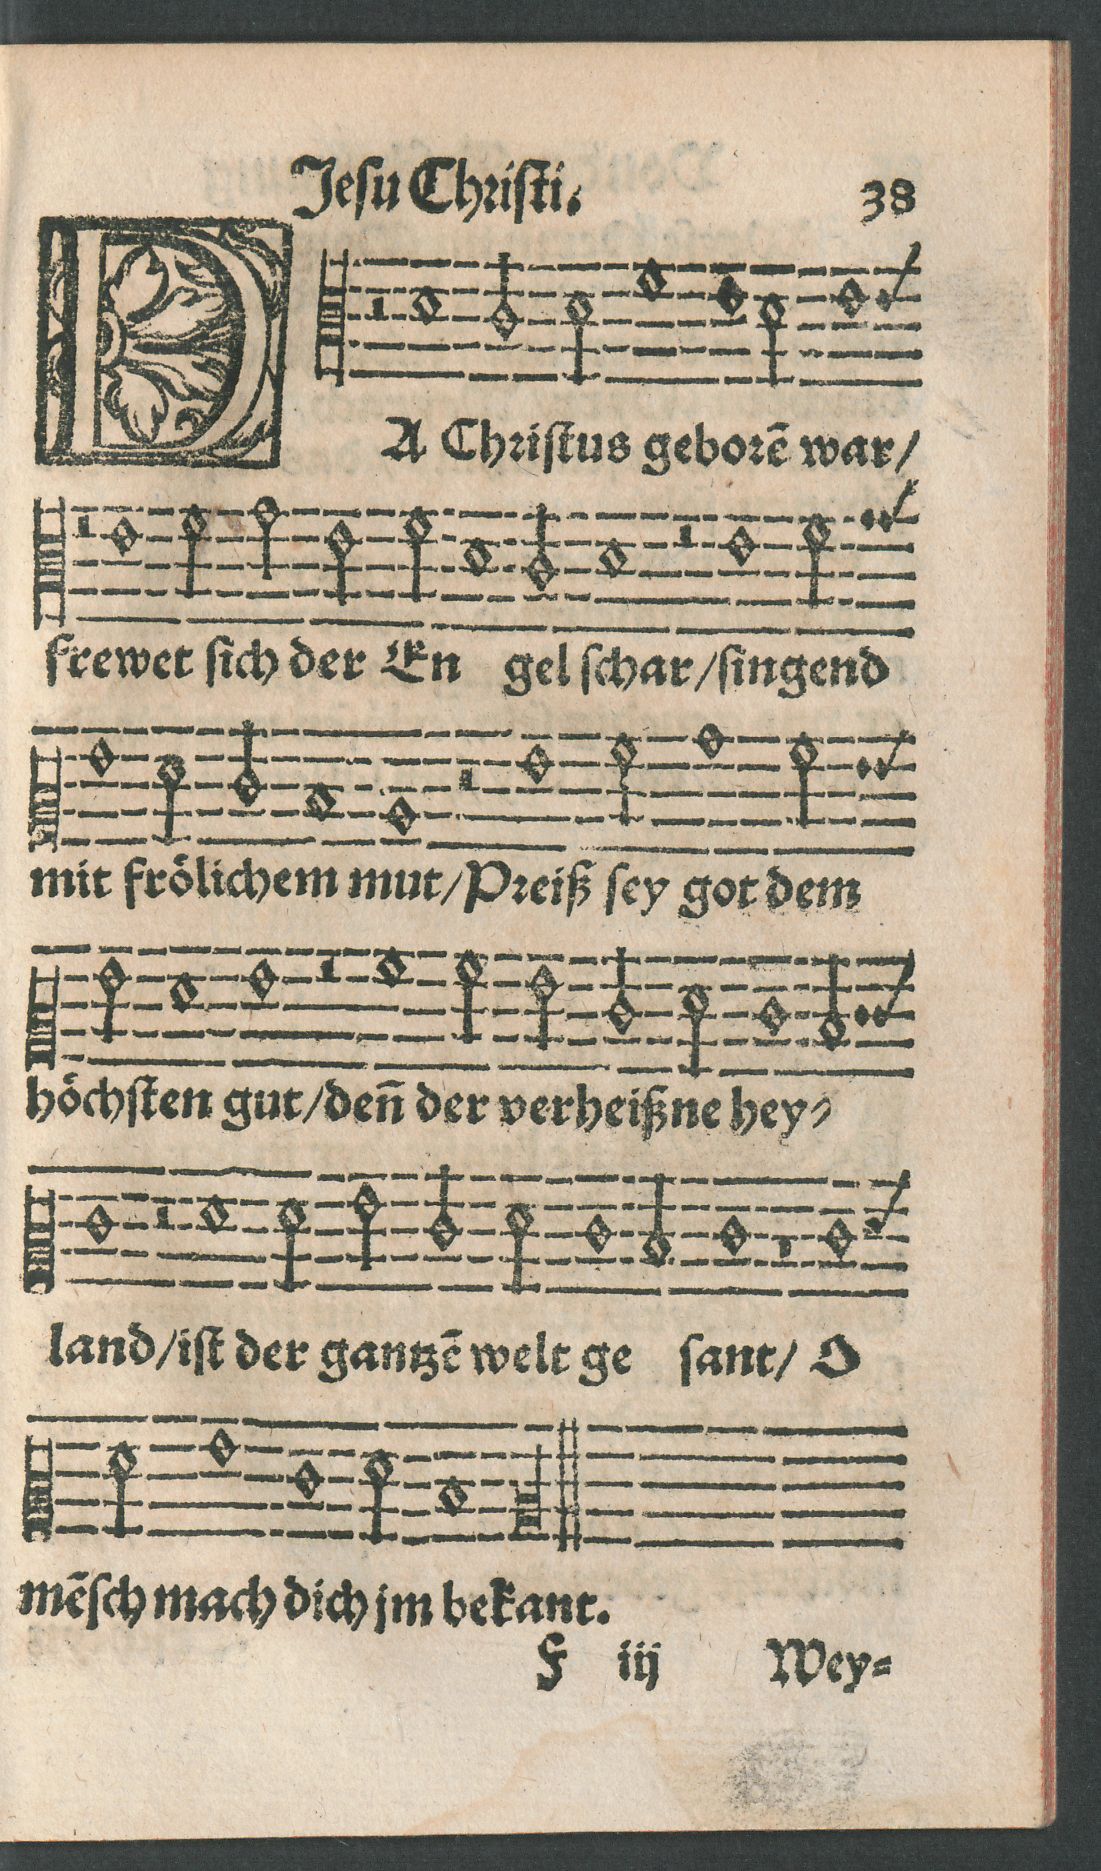 Jesu Christi. 38
DA Christus geborē war/
frewet sich der En gel schar/singend
mit frölichem mut/Preiß sey got dem
höchsten gut/den̄ der verheißne hey⸗
land/ist der gantzē welt ge sant/ O
mēsch mach dich jm bekant.
F iij Wey⸗